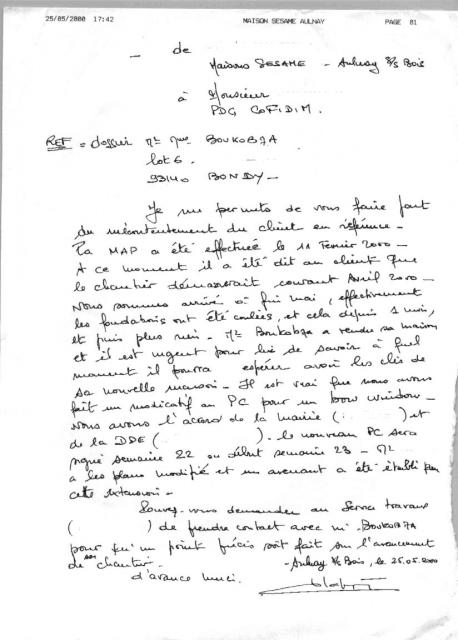 25/05/2000 17:42 MAISON SESAME AULNAY PAGE 01
de
Maisons SESAME - Aulnay s/s Bois
à Monsieur
PDG COFIDIM.
REF = dossier Mr Mme BOUKOBZA
lot 6.
93140 BONDY -
Je me permets de vous faire part
du mécontentement du client en référence -
La MAP a été effectuée le 11 Février 2000 -
A ce moment il a été dit au client que
le chantier démarrerait courant Avril 2000 -
Nous sommes arrivé à fin mai, effectivement
les fondations ont été coulées, et cela depuis 1 mois,
et puis plus rien - Mr Boukobza a vendu sa maison
et il est urgent pour lui de savoir à quel
moment il pourra espérer avoir les clés de
sa nouvelle maison - Il est vrai que nous avons
fait un modicatif au PC pour un bow window -
Nous avons l'accord de la mairie ( ) et
de la DDE ( ). le nouveau PC sera
signé semaine 22 ou début semaine 23 - Mr
a les plans modifié et un avenant a été établi pour
cette extension -
Pouvez-vous demander au Service travaux
( ) de prendre contact avec Mr BOUKOBZA
pour qu'un point précis soit fait sur l'avancement
de son chantier.
- Aulnay s/s Bois, le 25.05.2000
d'avance merci.